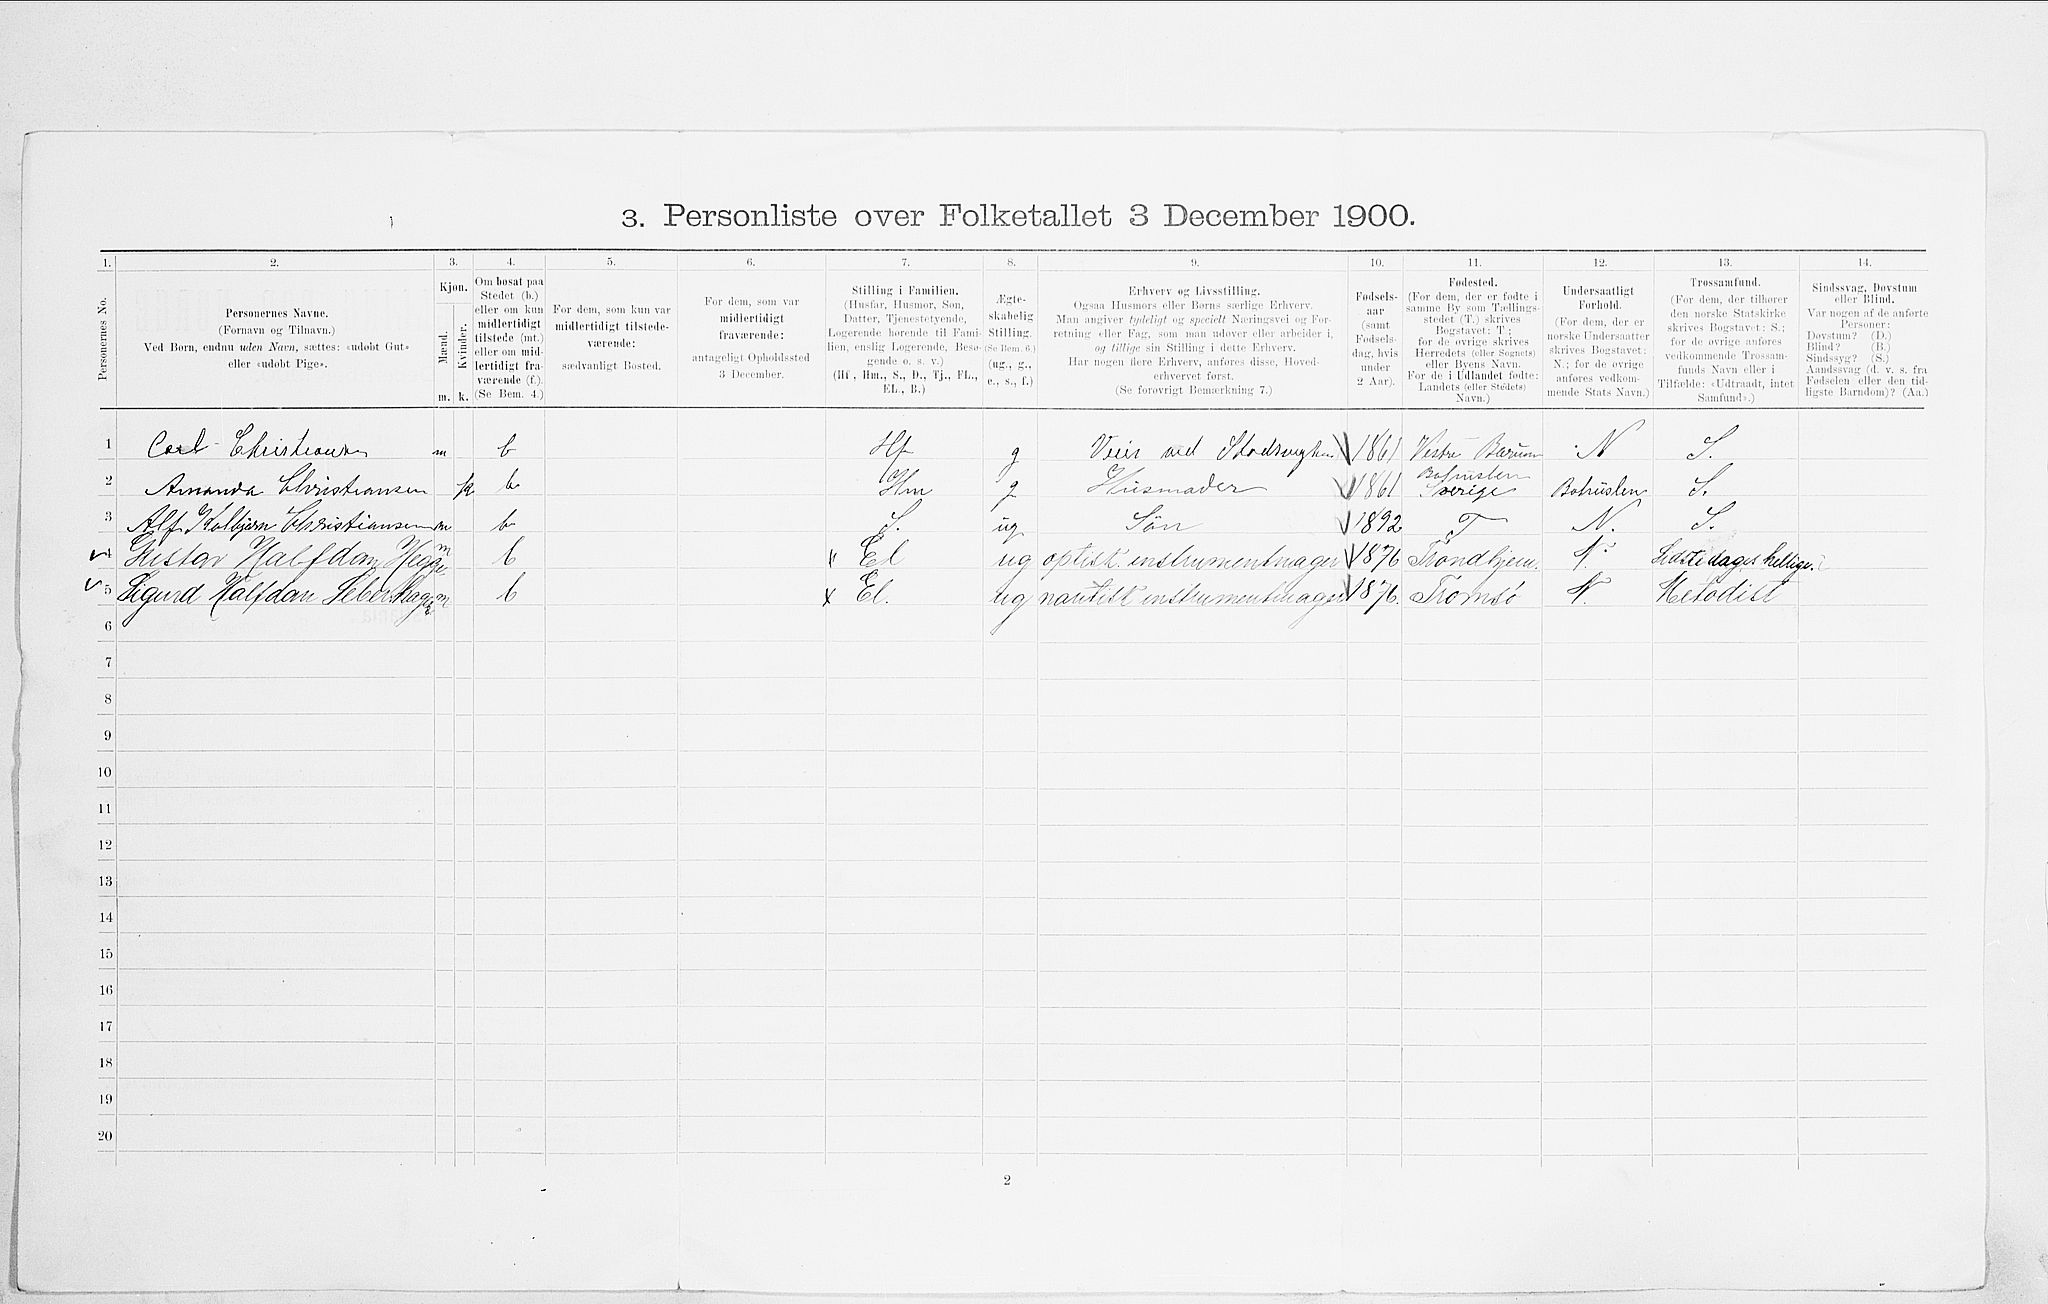 3. Personliste over Folketallet 3 December 1900.
1. 2. 3. 4. 5. 6. 7. 8. 9. 10. 11. 12. 13. 14.
Personernes No.
Personernes Navne.
(Fornavn og Tilnavn.)
Ved Børn, endnu uden Navn, sættes: «udøbt Gut»
eller «udøbt Pige».
Kjøn.
Mænd.
Kvinder.
m. k.
Om bosat paa
Stedet (b.)
eller om kun
midlertidigt
tilstede (mt.)
eller om mid-
lertidigt fra-
værende (f.).
(Se Bem. 4.)
For dem, som kun var
midlertidigt tilstede-
værende:
sædvanligt Bosted.
For dem, som var
midlertidigt
fraværende:
antageligt Opholdssted
3 December.
Stilling i Familien.
(Husfar, Husmor, Søn,
Datter, Tjenestetyende,
Logerende hørende til Fami-
lien, enslig Logerende, Besø-
gende o. s. v.)
(Hf, Hm., S., D., Tj., FL.,
EL., B.)
Ægte-
skabelig
Stilling.
(Se Bem. 6.)
(ug., g.,
e., s., f.)
Erhverv og Livsstilling.
Ogsaa Husmors eller Børns særlige Erhverv.
Man angiver tydeligt og specielt Næringsvei og For-
retning eller Fag, som man udøver eller arbeider i,
og tillige sin Stilling i dette Erhverv.
Har nogen flere Erhverv, anføres disse, Hoved-
erhvervet først.
(Se forøvrigt Bemærkning 7.)
Fødsels-
aar
(samt
Fødsels-
dag, hvis
under
2 Aar).
Fødested.
(For dem, der er fødte i
samme By som Tællings-
stedet (T.) skrives
Bogstavet: T.;
for de øvrige skrives
Herredets (eller Sognets)
eller Byens Navn.
For de i Udlandet fødte:
Landets (eller Stedets)
Navn.)
Undersaatligt
Forhold.
(For dem, der er
norske Undersaatter
skrives Bogstavet:
N.; for de øvrige
anføres vedkom-
mende Stats Navn.)
Trossamfund.
(For dem, der tilhører
den norske Statskirke
skrives Bogstavet: S.;
for de øvrige anføres
vedkommende Trossam-
funds Navn eller i
Tilfælde: «Udtraadt, intet
Samfund».)
Sindssvag, Døvstum
eller Blind.
Var nogen af de anførte
Personer:
Døvstum? (D.)
Blind? (B.)
Sindssyg? (S.)
Aandssvag (d. v. s. fra
Fødselen eller den tid-
ligste Barndom)? (Aa.)
1 Carl Christiansen m b Hf g Veier ved 1861 Vestre Bærum N S.
2 Amanda Christiansen k b Hm g Husmoder 1861 Bohuslen Sverige Bohuslen S.
3 Alf Kolbjørn Christiansen m b S. ug Søn 1892 T N. S.
4 Gustav Halfdan Hegge m b El ug optisk instrumentmager 1876 Trondhjem. N. Sidste dages hellige.
5 Sigurd Halfdan m b x El. ug nautisk instrumentmager 1876. Tromsø N. Metodist
6
7
8
9
10
11
12
13
14
15
16
17
18
19
20
2